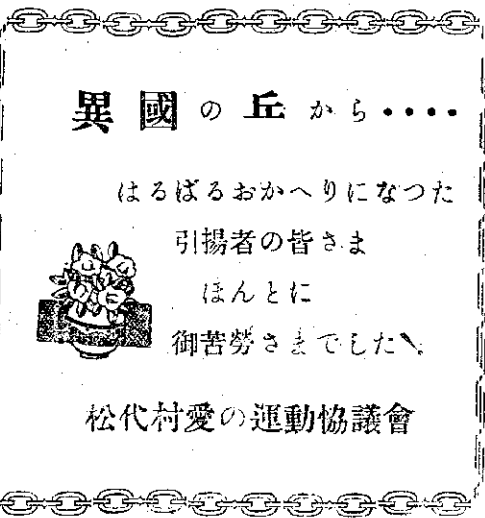 異國の丘から‥‥
はるばるおかへりになつた
引揚者の皆さま
ほんとに
御苦勞さまでした〵
松代村愛の運動協議會